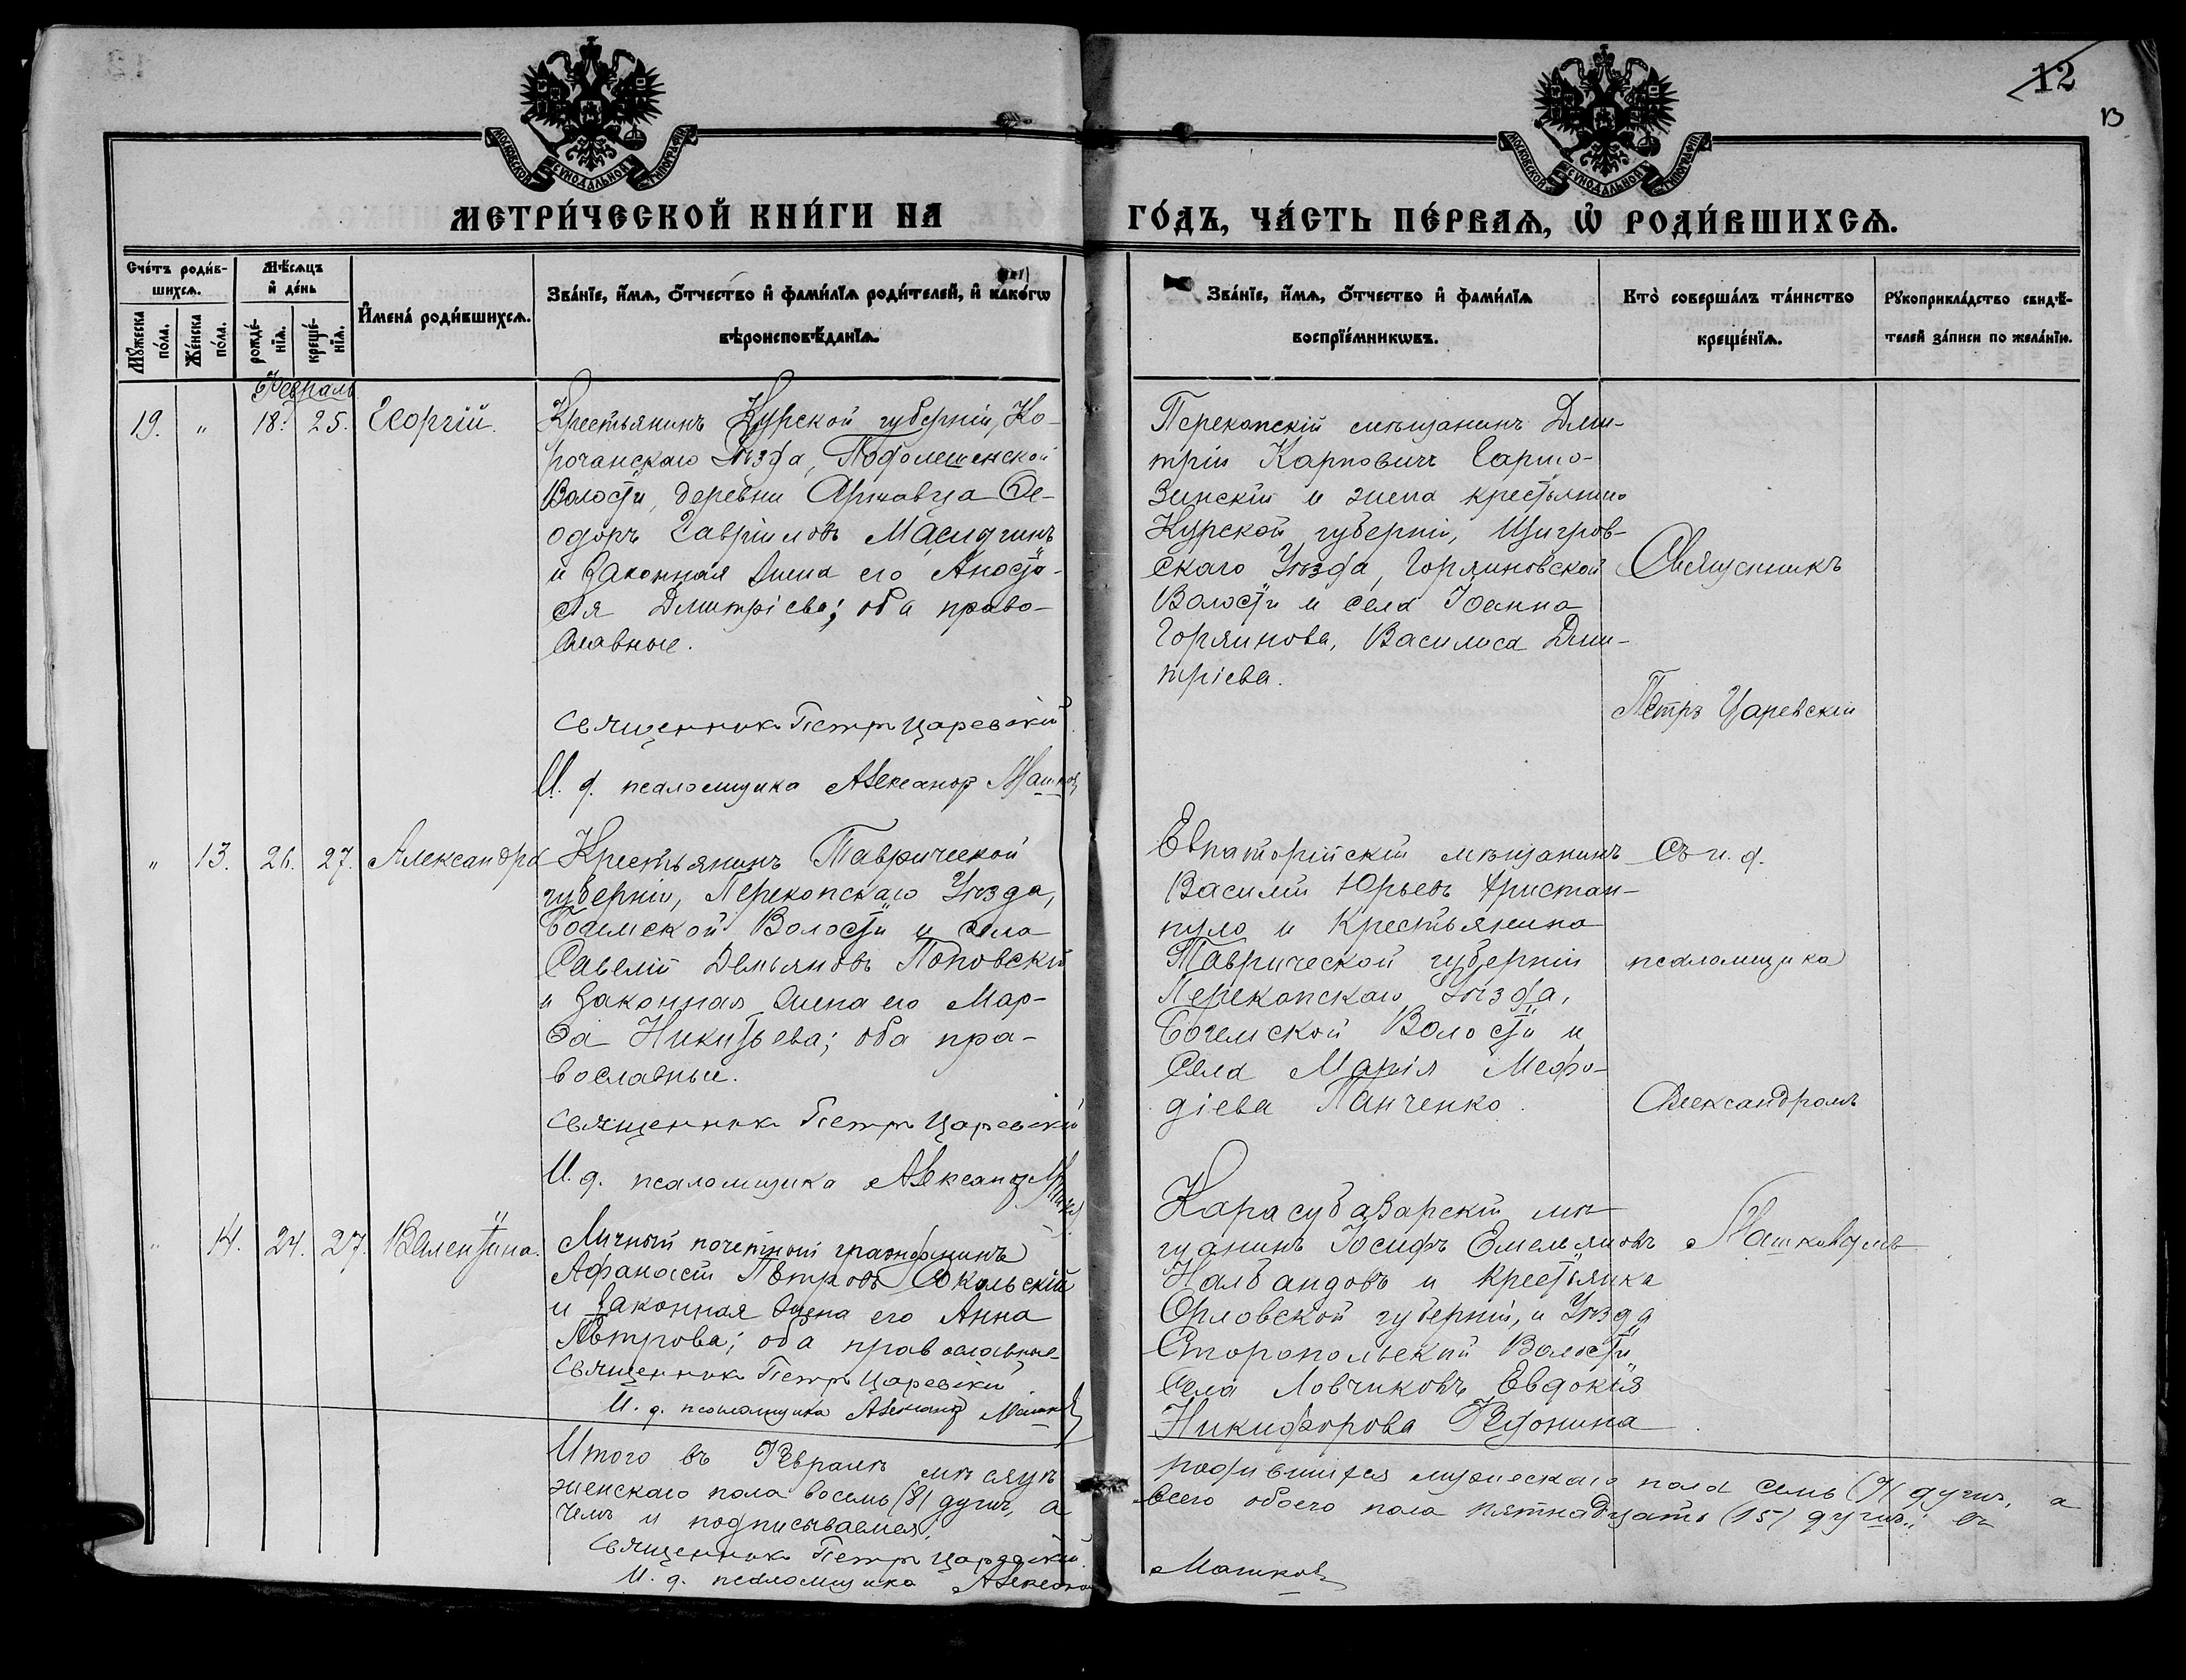 12
13
МОСКОВСКОЙ СѴНОДАЛЬНОЙ ТИПОГРАФІИ
МОСКОВСКОЙ СѴНОДАЛЬНОЙ ТИПОГРАФІИ
МЕТРИ́ЧЕСКОЙ КНИ́ГИ НА ГО́ДЪ, ЧА́СТЬ ПЕ́РВАѦ, Ѡ҆ РОДИ́ВШИХСѦ.
Сче́тъ роди́в-
шихсѧ.
Мѹ́жеска
по́ла.
Же́нска
по́ла.
Мѣ́сѧцъ
и҆ де́нь
рожде́-
нїѧ.
креще́-
нїѧ.
И҆мена̀ роди́вшихсѧ.
Зва́нїе, и҆́мѧ, ѻ҆́тчество и҆ фами́лїѧ роди́телей, и҆ како́гѡ
вѣроисповѣ́данїѧ.
Зва́нїе, и҆́мѧ, ѻ҆́тчество и҆ фами́лїѧ
воспрїе́мникѡвъ.
Кто̀ соверша́лъ та́инство
креще́нїѧ.
Рѹкоприкла́дство свидѣ́-
телей за́писи по жела́нїю.
Февраль
19. „ 18. 25. Георгій.
Крестьянинъ Курской губерніи, Ко-
рочанскаго Уѣзда, Подолешенской
Волости, деревни Ѳе-
одоръ Гавріиловъ
и законная жена его Анаста-
сія Дмитріева; оба право-
славные.
Священникъ Петръ Царевскій
И. д. псаломщика Александръ Машковъ
Перекопскій мѣщанинъ Дми-
трій Карповичъ
и жена крестьянина
Курской губерніи, Щигров-
скаго Уѣзда, Горяиновской
Волости и села Іоанна
Горяинова, Василиса Дми-
тріева.
Священникъ
Петръ Царевскій
„ 13. 26. 27. Александра
Крестьянинъ Таврической
губерніи, Перекопскаго Уѣзда,
Богемской Волости и села
Савелій Демьяновъ Поповскій
и законная жена его Мар-
ѳа Никитьева; оба пра-
вославные.
Священникъ Петръ Царевскій
И. д. псаломщика Александръ Машковъ
Евпаторійскій мѣщанинъ
Василій Юрьевъ Христан-
пуло и Крестьянина
Таврической губерніи
Перекопскаго Уѣзда,
Богемской Волости и
Села Марія Мефо-
діева Панченко.
Съ и. д.
псаломщика
Александромъ
Машковымъ
„ 14. 24. 27. Валентина.
Личный почетный гражданинъ
Афанасій Петровъ Сокольскій
и законная жена его Анна
Петрова; оба православные
Священникъ Петръ Царевскій
И. д. псаломщика Александръ Машковъ
Карасубазарскій мѣ-
щанинъ Іосифъ Емельяновъ
Налбандовъ и крестьянка
Орловской губерніи, и Уѣзда
Волости
Села Ловчиковъ Евдокія
Никифорова
Итого въ Февралѣ мѣсяцѣ родившихся мужескаго пола семь (7) душъ, а
женскаго пола восемь (8) душъ, а всего обоего пола пятнадцать (15) душъ; въ
чемъ и подписываемся.
Священникъ Петръ Царевскій
И. д. псаломщика Александръ Машковъ